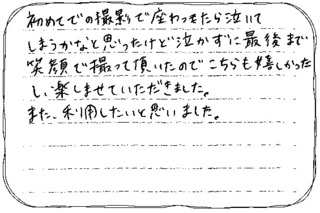 初めてでの撮影で座わったら泣いて
しまうかなと思ったけど泣かずに最後まで
笑顔で撮って頂いたのでこちらも嬉しかった
し、楽しませていただきました。
また、利用したいと思いました。